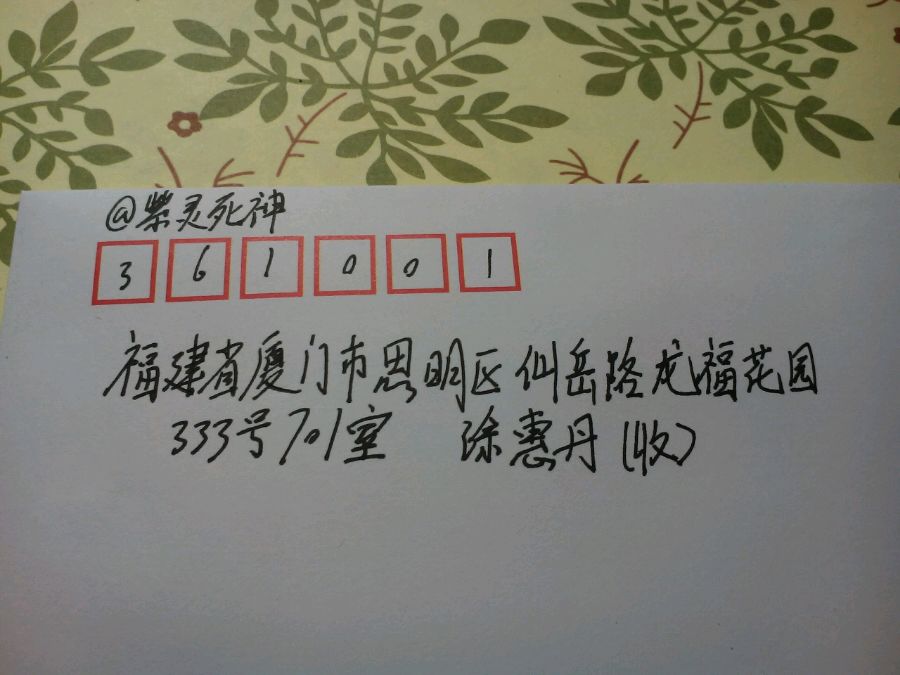 @紫灵死神
361001
福建省厦门市思明区仙岳路龙福花园
333号701室 徐惠丹(收)